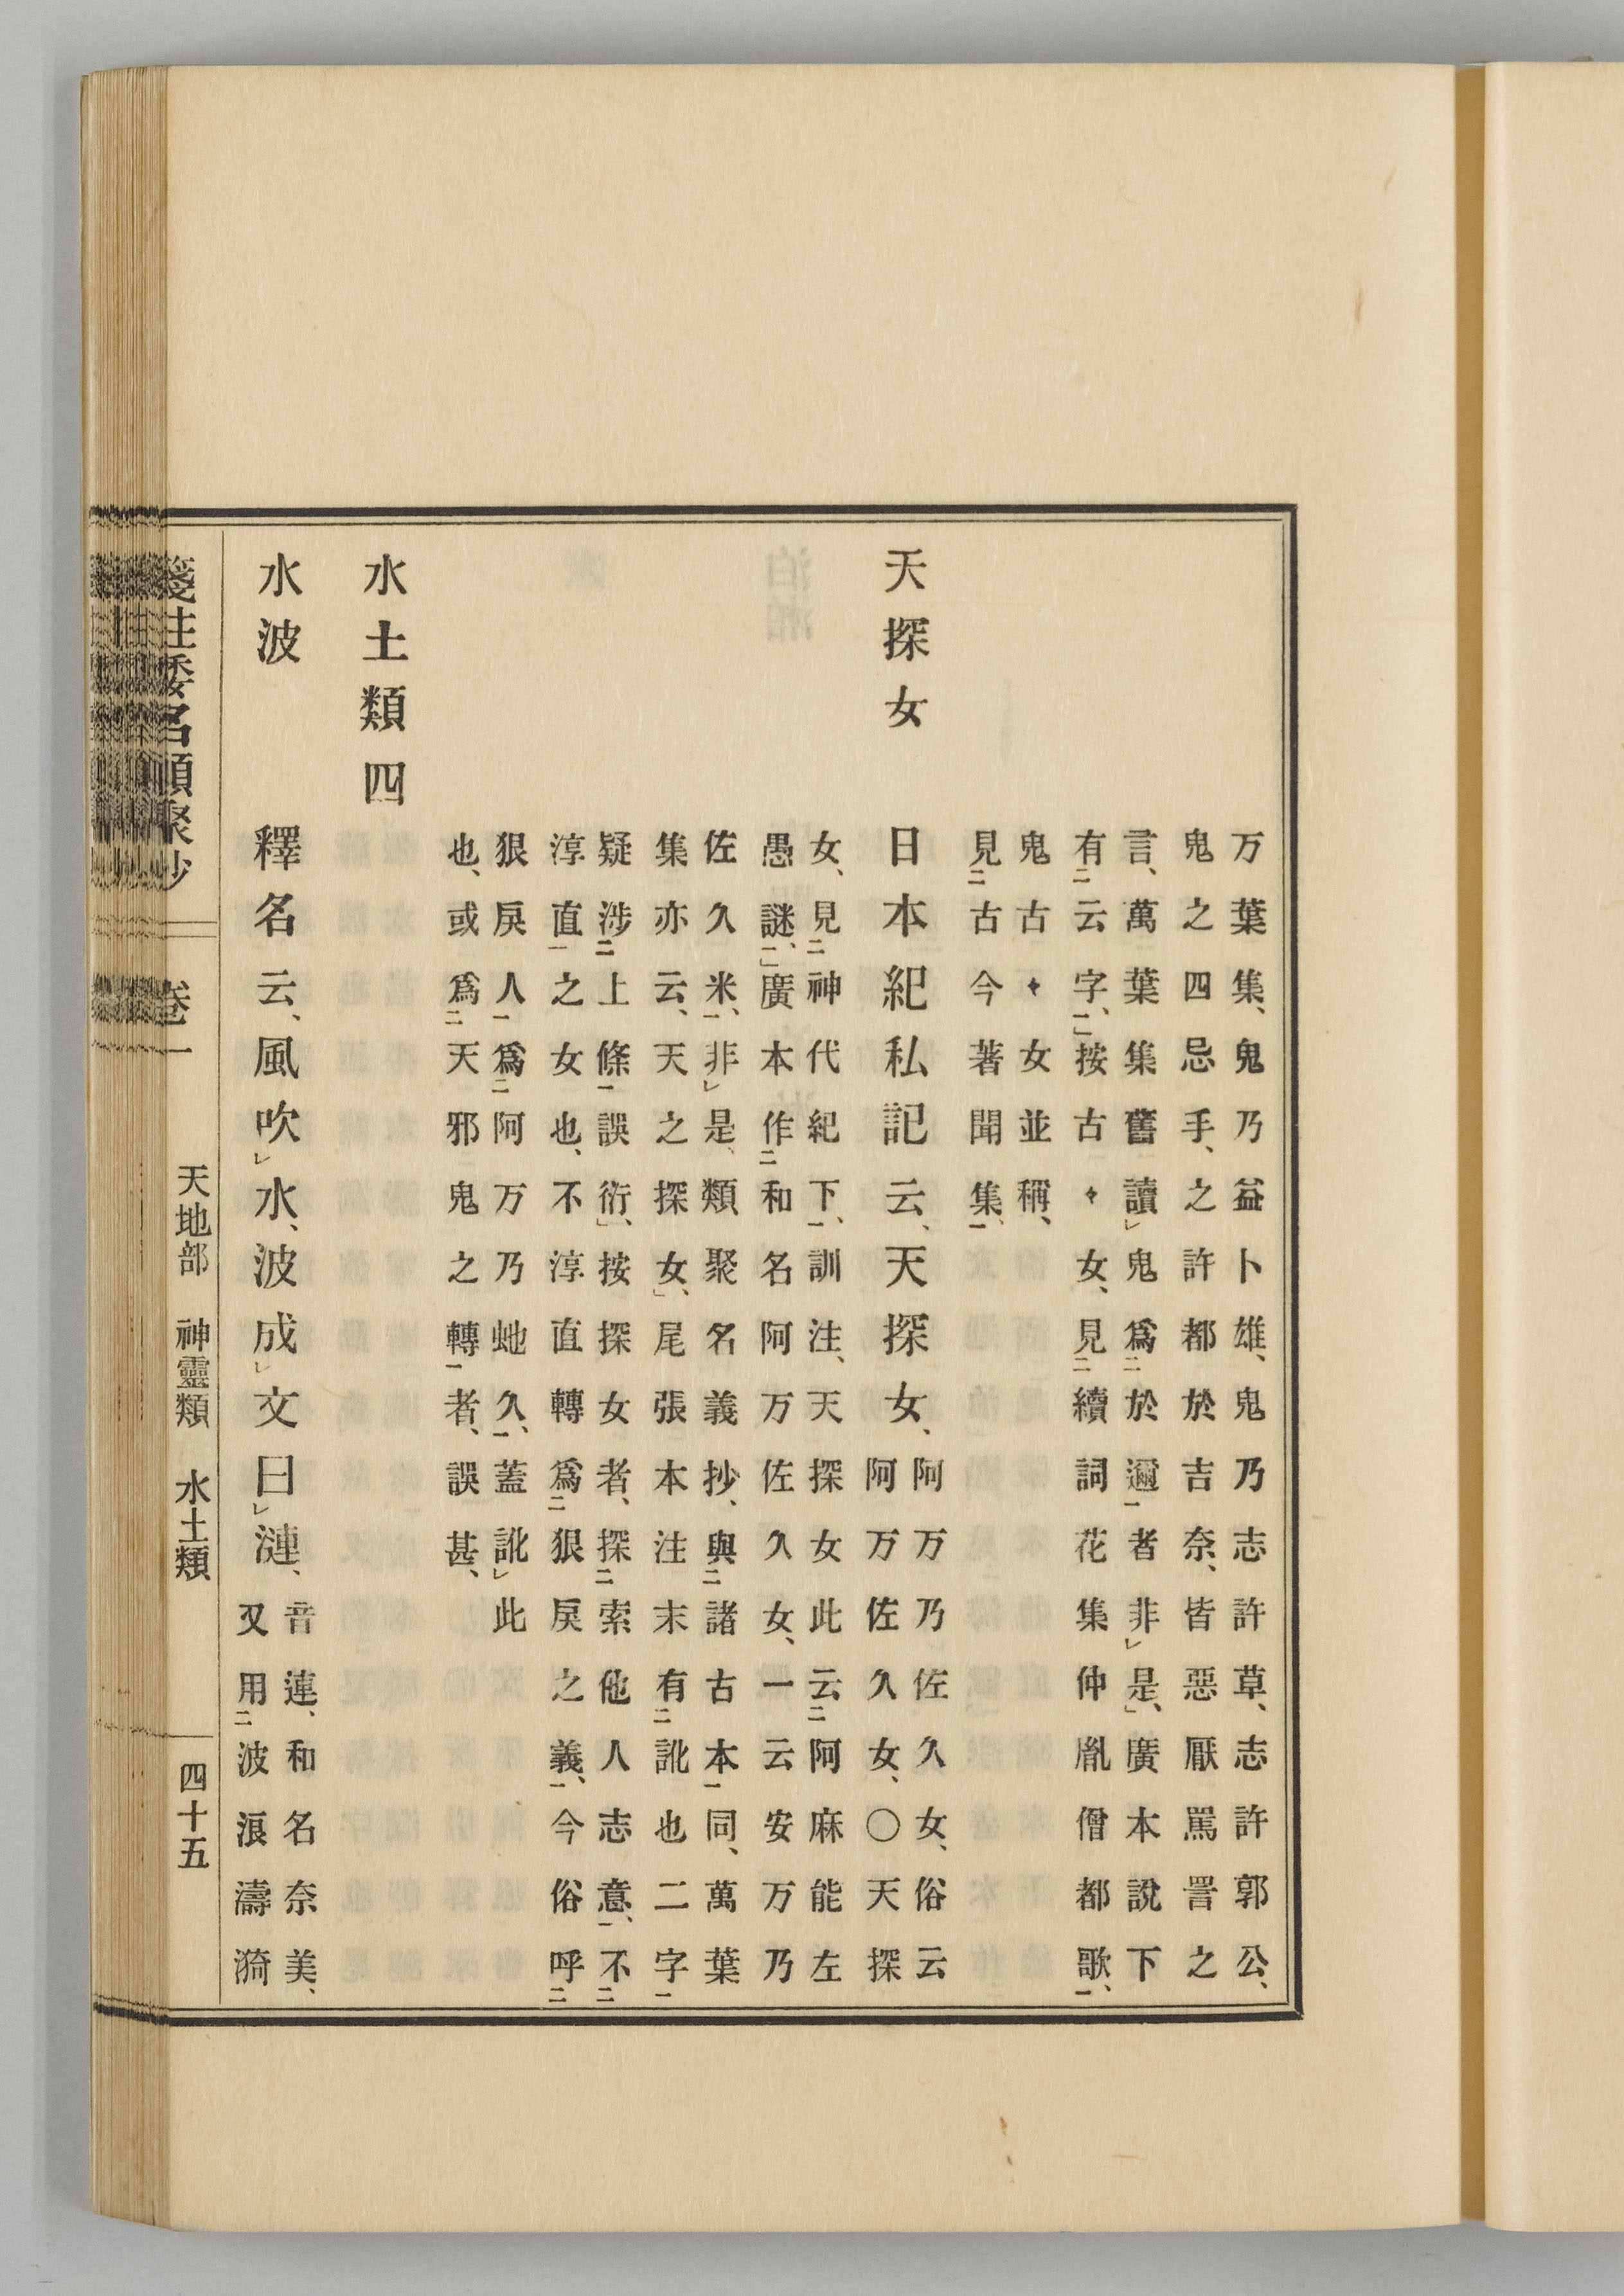 万葉集、鬼乃益卜雄、鬼乃志許草、志許郭公、
鬼之四忌手、之許都於吉奈、皆惡厭罵詈之
言、萬葉集舊讀鬼爲於邇者非是、廣本說下
有云字、按古々女、見續詞花集仲胤僧都歌、
鬼古々女並稱、
見古今著聞集、
天探女 日本紀私記云、天探女、
阿万乃佐久女、俗云
阿万佐久女、〇天探
女、見神代紀下、訓注、天探女此云阿麻能左
愚謎、廣本作和名阿万佐久女、一云安万乃
佐久米、非是、類聚名義抄、與諸古本同、萬葉
集亦云、天之探女、尾張本注末有訛也二字
疑涉上條誤衍、按探女者、探索他人志意、不
淳直之女也、不淳直轉爲狠戾之義、今俗呼
狠戾人爲阿万乃虵久、蓋訛此
也、或爲天邪鬼之轉者、誤甚、
水土類四
水波 釋名云、風吹水、波成文曰漣、
音連、和名奈美、
又用波浪濤漪
箋注倭名類聚抄 卷一 天地部 神靈類 水土類 四十五